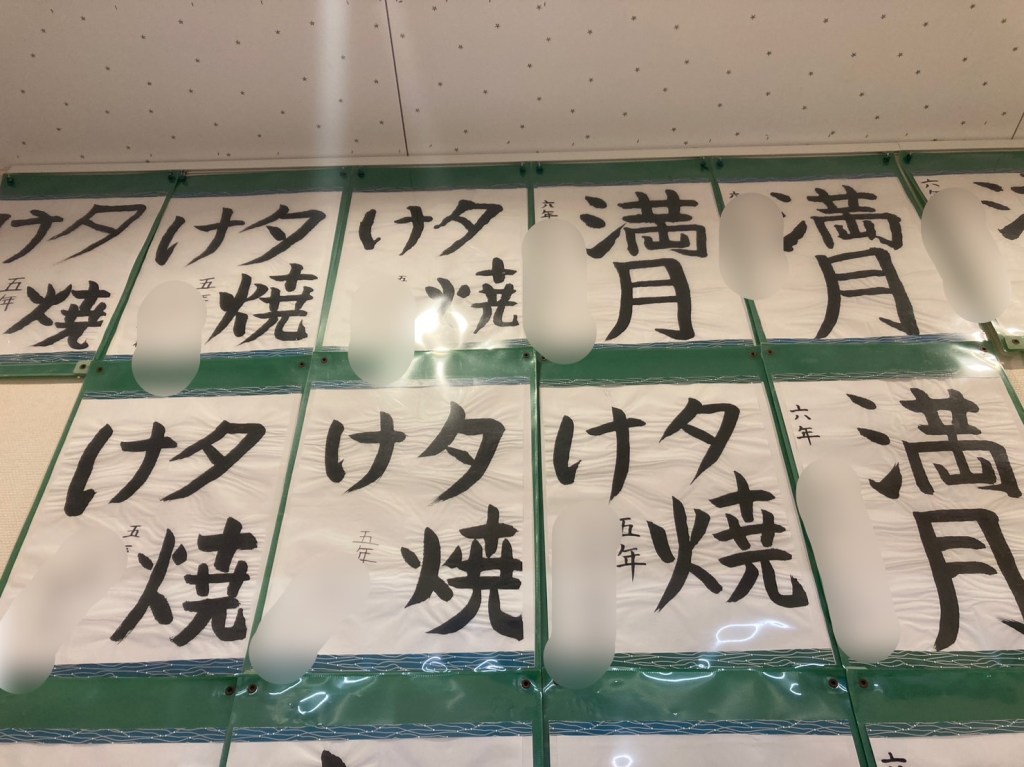 夕焼
け
五年
夕焼
け
五年
夕焼
け
五
満月
六年
満月
六年
夕焼
け
五年
夕焼
け
五年
夕焼
け
五年
満月
六年